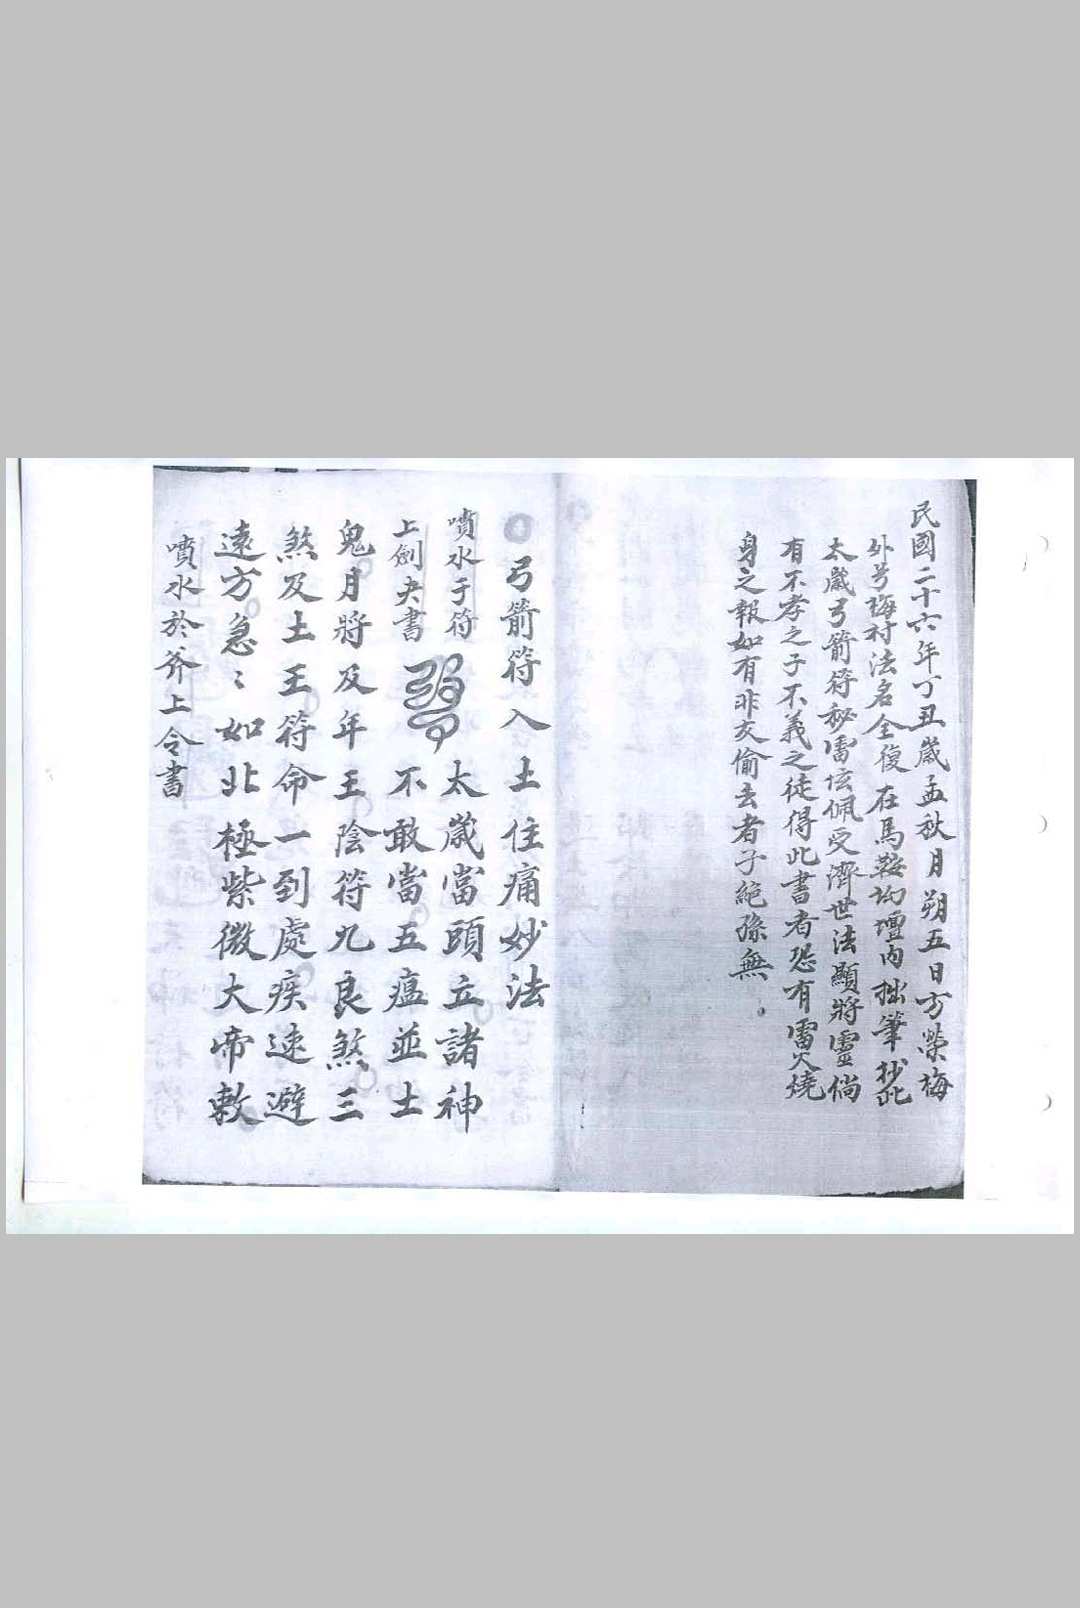 民國二十六年丁丑歲孟秋月朔五日方榮梅
外号梅村法名全復在馬鞍坳壇內拙筆抄此
太歲弓箭符秘雷坛佩受濟世法顯將靈倘
有不孝之子不義之徒得此書者恐有雷火燒
身之報如有非友偷去者子絕孫無。
弓箭符入土住痛妙法
噴水于符
上劍夬書
太歲當頭立諸神
不敢當五瘟並土
鬼月將及年王陰符九良煞三
煞及土王符命一到處疾速避
遠方急〻如北極紫微大帝敕
噴水於斧上令書